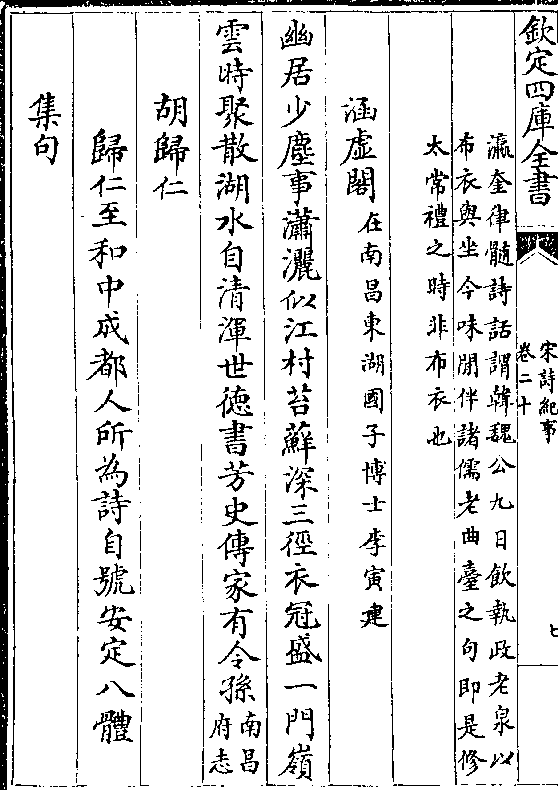 欽定四庫全書
宋詩紀事
卷二十
七
瀛奎律髓詩話謂韓魏公九日飲執政老泉以
布衣與坐今味閒伴諸儒老曲臺之句即是修
太常禮之時非布衣也
涵虚閣在南昌東湖國子博士李寅建
幽居少塵事瀟灑似江村苔蘚深三徑衣冠盛一門嶺
雲時聚散湖水自清渾世徳書芳史傳家有令孫南昌
府志
胡歸仁
歸仁至和中成都人所為詩自號安定八體
集句